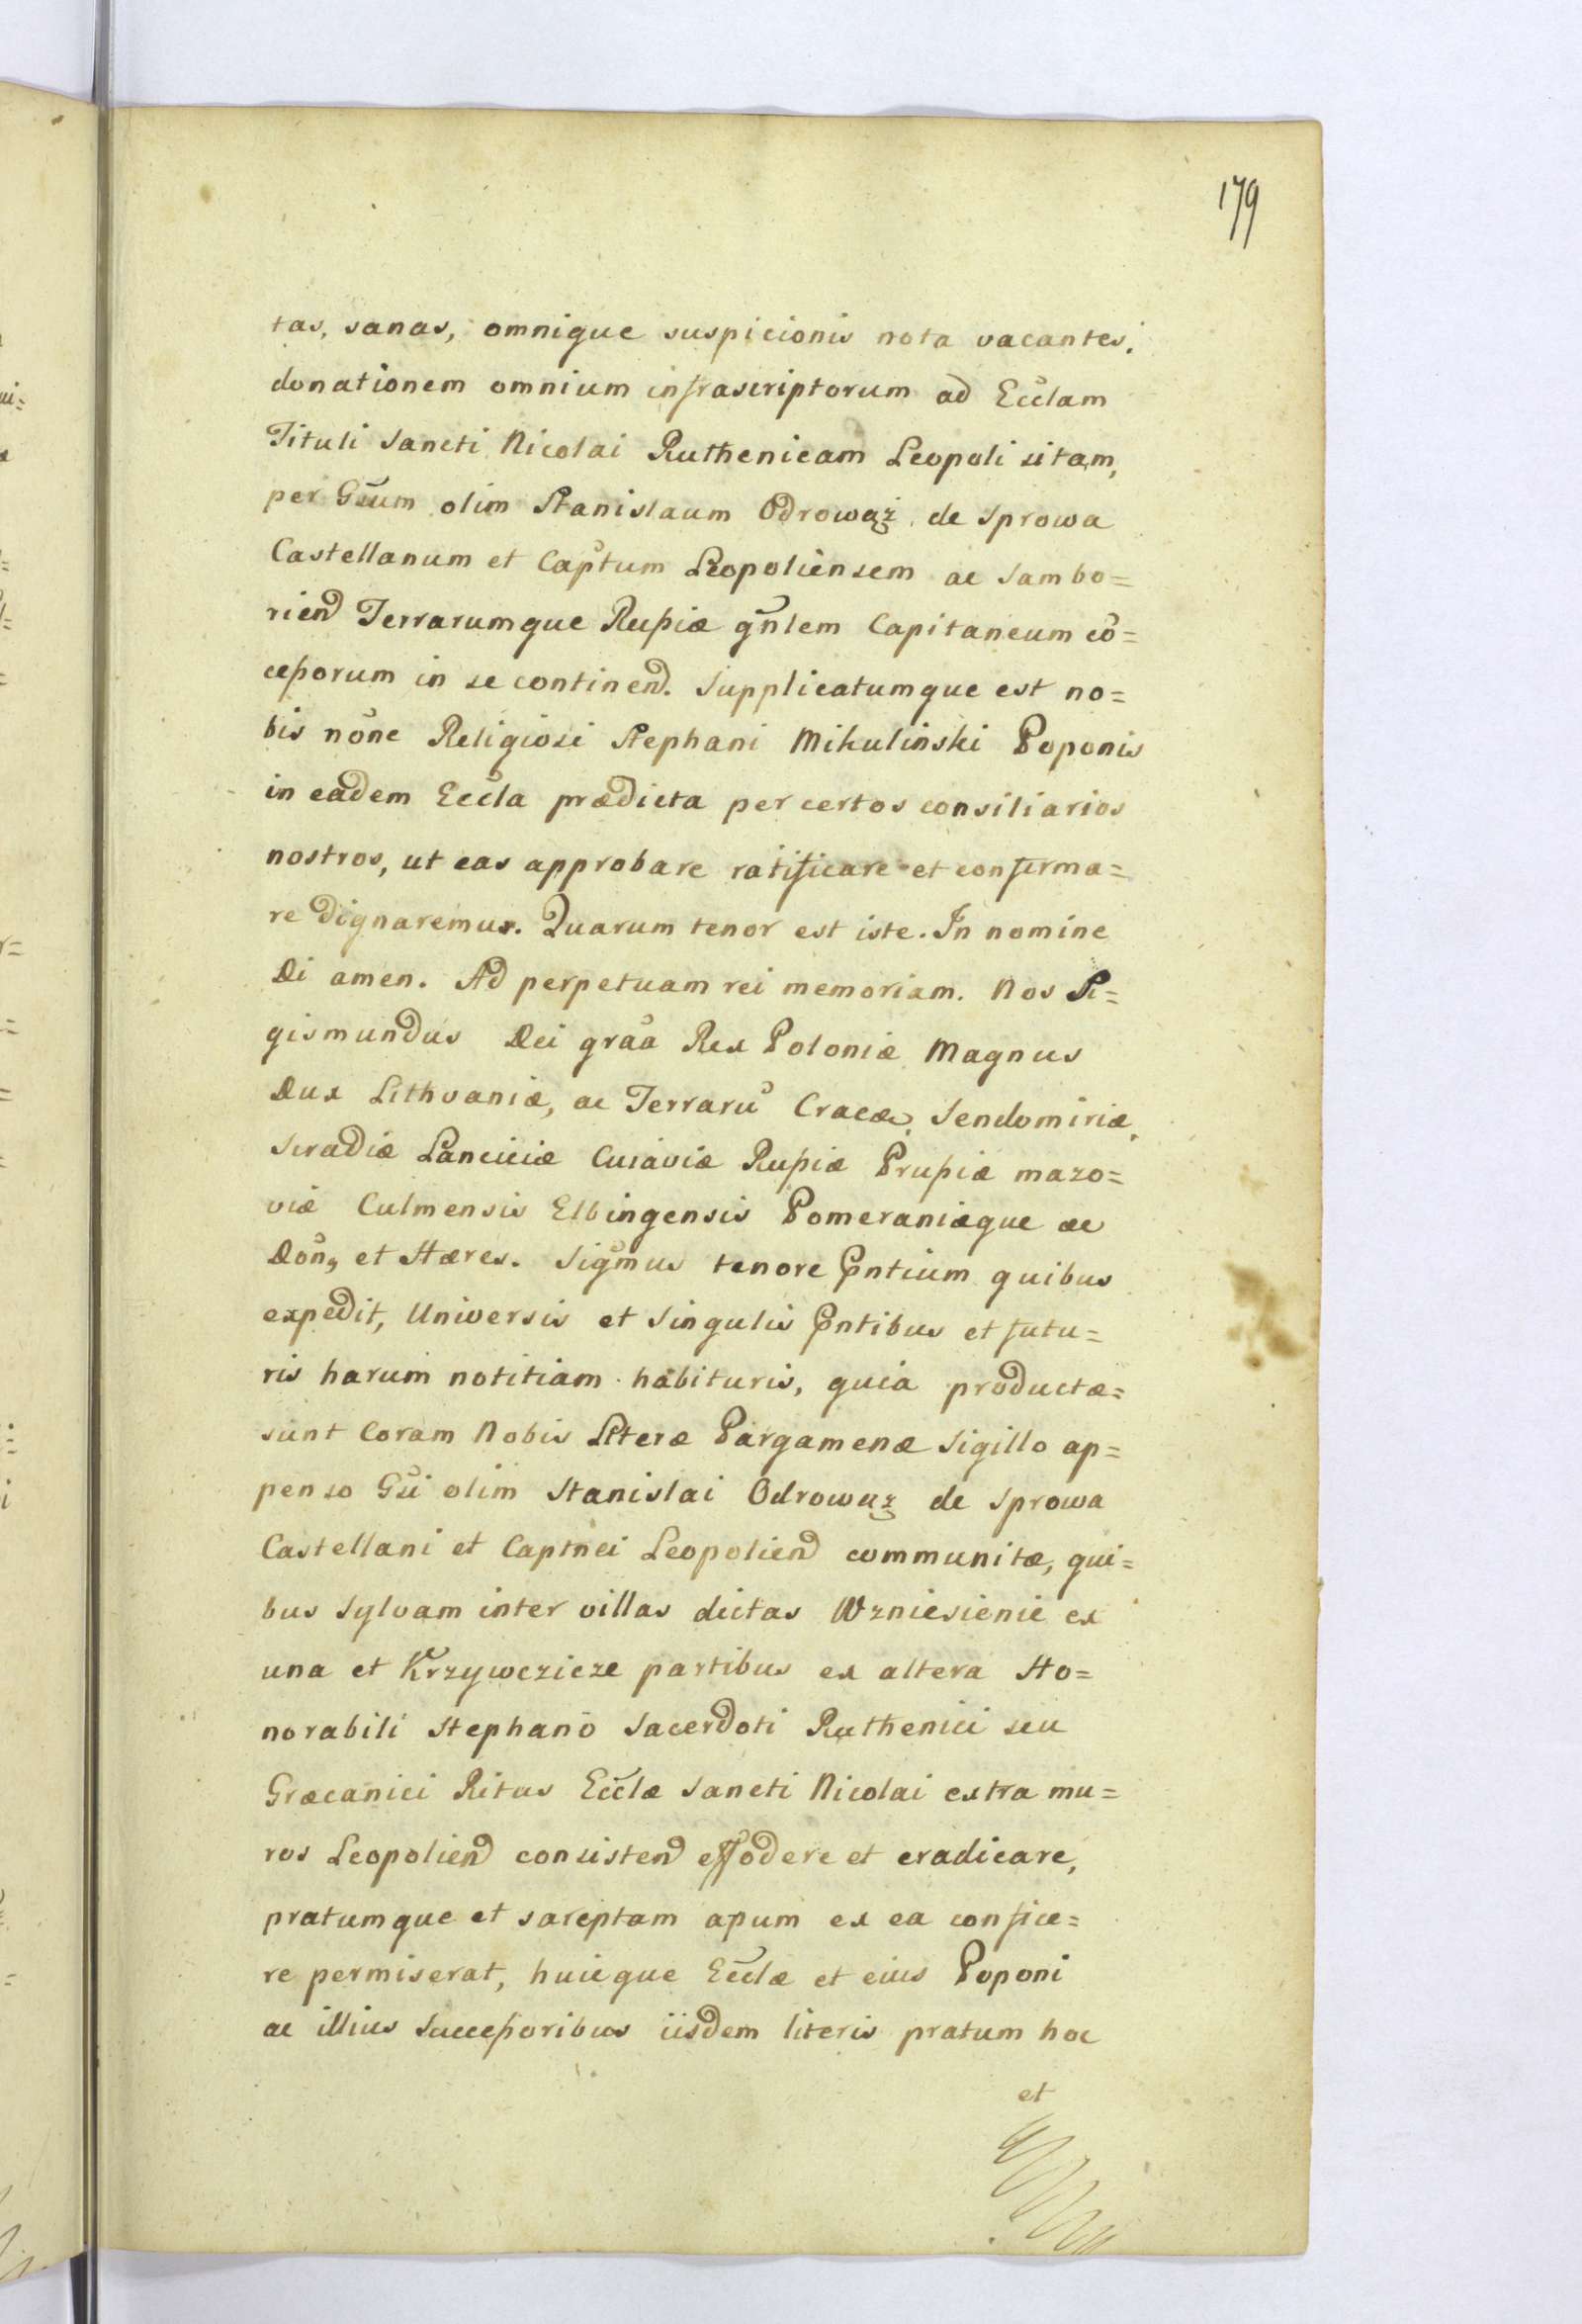 179
tas, sanas, omnique suspicionis nota vacantes,
donationem omnium infrascriptorum ad Ecc̃lam
Tituli Sancti Nicolai Ruthenicam Leopoli sitam,
per Gsũm olim Stanislaum Odrowąż de Sprowa
Castellanum et Cap̃tum Leopoliensem ac Sambo=
rien̄ Terrarumque Rußiæ gñlem Capitaneum cõ=
ceßorum in se continen̄. Supplicatumque est no=
bis nõne Religiosi Stephani Mikulinski Poponis
in eadem Ecc̃la prædicta per certos consiliarios
nostros, ut eas approbare ratificare et confirma=
re dignaremur. Quarum tenor est iste. In nomine
Di amen. Ad perpetuam rei memoriam. Nos Si=
gismundus Dei graã Rex Poloniæ Magnus
Dux Lithvaniæ, ac Terrarũ Cracæ, Sendomiriæ,
Siradiæ Lanciciæ Cuiaviæ Rußiæ Prußiæ mazo=
viæ Culmensis Elbingensis Pomeraniæque ac
Doñ, et Hæres. Sigm̃us tenore Pñtium quibus
expedit, Universis et Singulis Pñtibus et futu=
ris harum notitiam habituris, quia productæ=
sunt Coram Nobis Literæ Pargamenæ Sigillo ap=
penso Gsĩ olim Stanislai Odrowąz de Sprowa
Castellani et Captnei Leopolien̄ communitæ, qui=
bus Sylvam inter villas dictas Wzniesienie ex
una et Krzywczicze partibus ex altera Ho=
norabili Stephano Sacerdoti Ruthenici seu
Græcanici Ritus Ecc̃læ Sancti Nicolai extra mu=
ros Leopolien̄ consisten̄ effodere et eradicare,
pratumque et sareptam apum ex ea confice=
re permiserat, huicque Ecc̃læ et eius Poponi
ac illius Succeßoribus iisdem literis pratum hoc
et